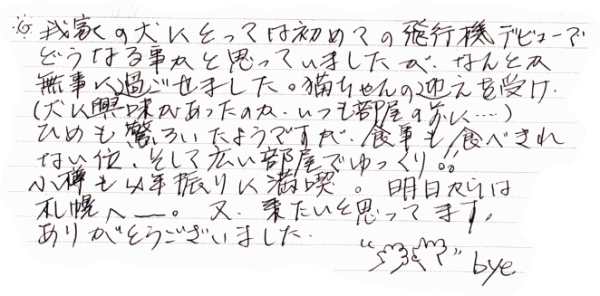 我家の犬にとっては初めての飛行機デビューで
どうなる事かと思っていましたが、なんとか
無事に過ごせました。猫ちゃんの迎えを受け、
(犬に興味があったのか、いつも部屋の前に……)
ひめも驚ろいたようですが、食事も食べきれ
ない位、そして広い部屋でゆっくり。
小樽も4年振りに満喫。明日からは
札幌へー。又、来たいと思ってます。
ありがとうございました。
bye